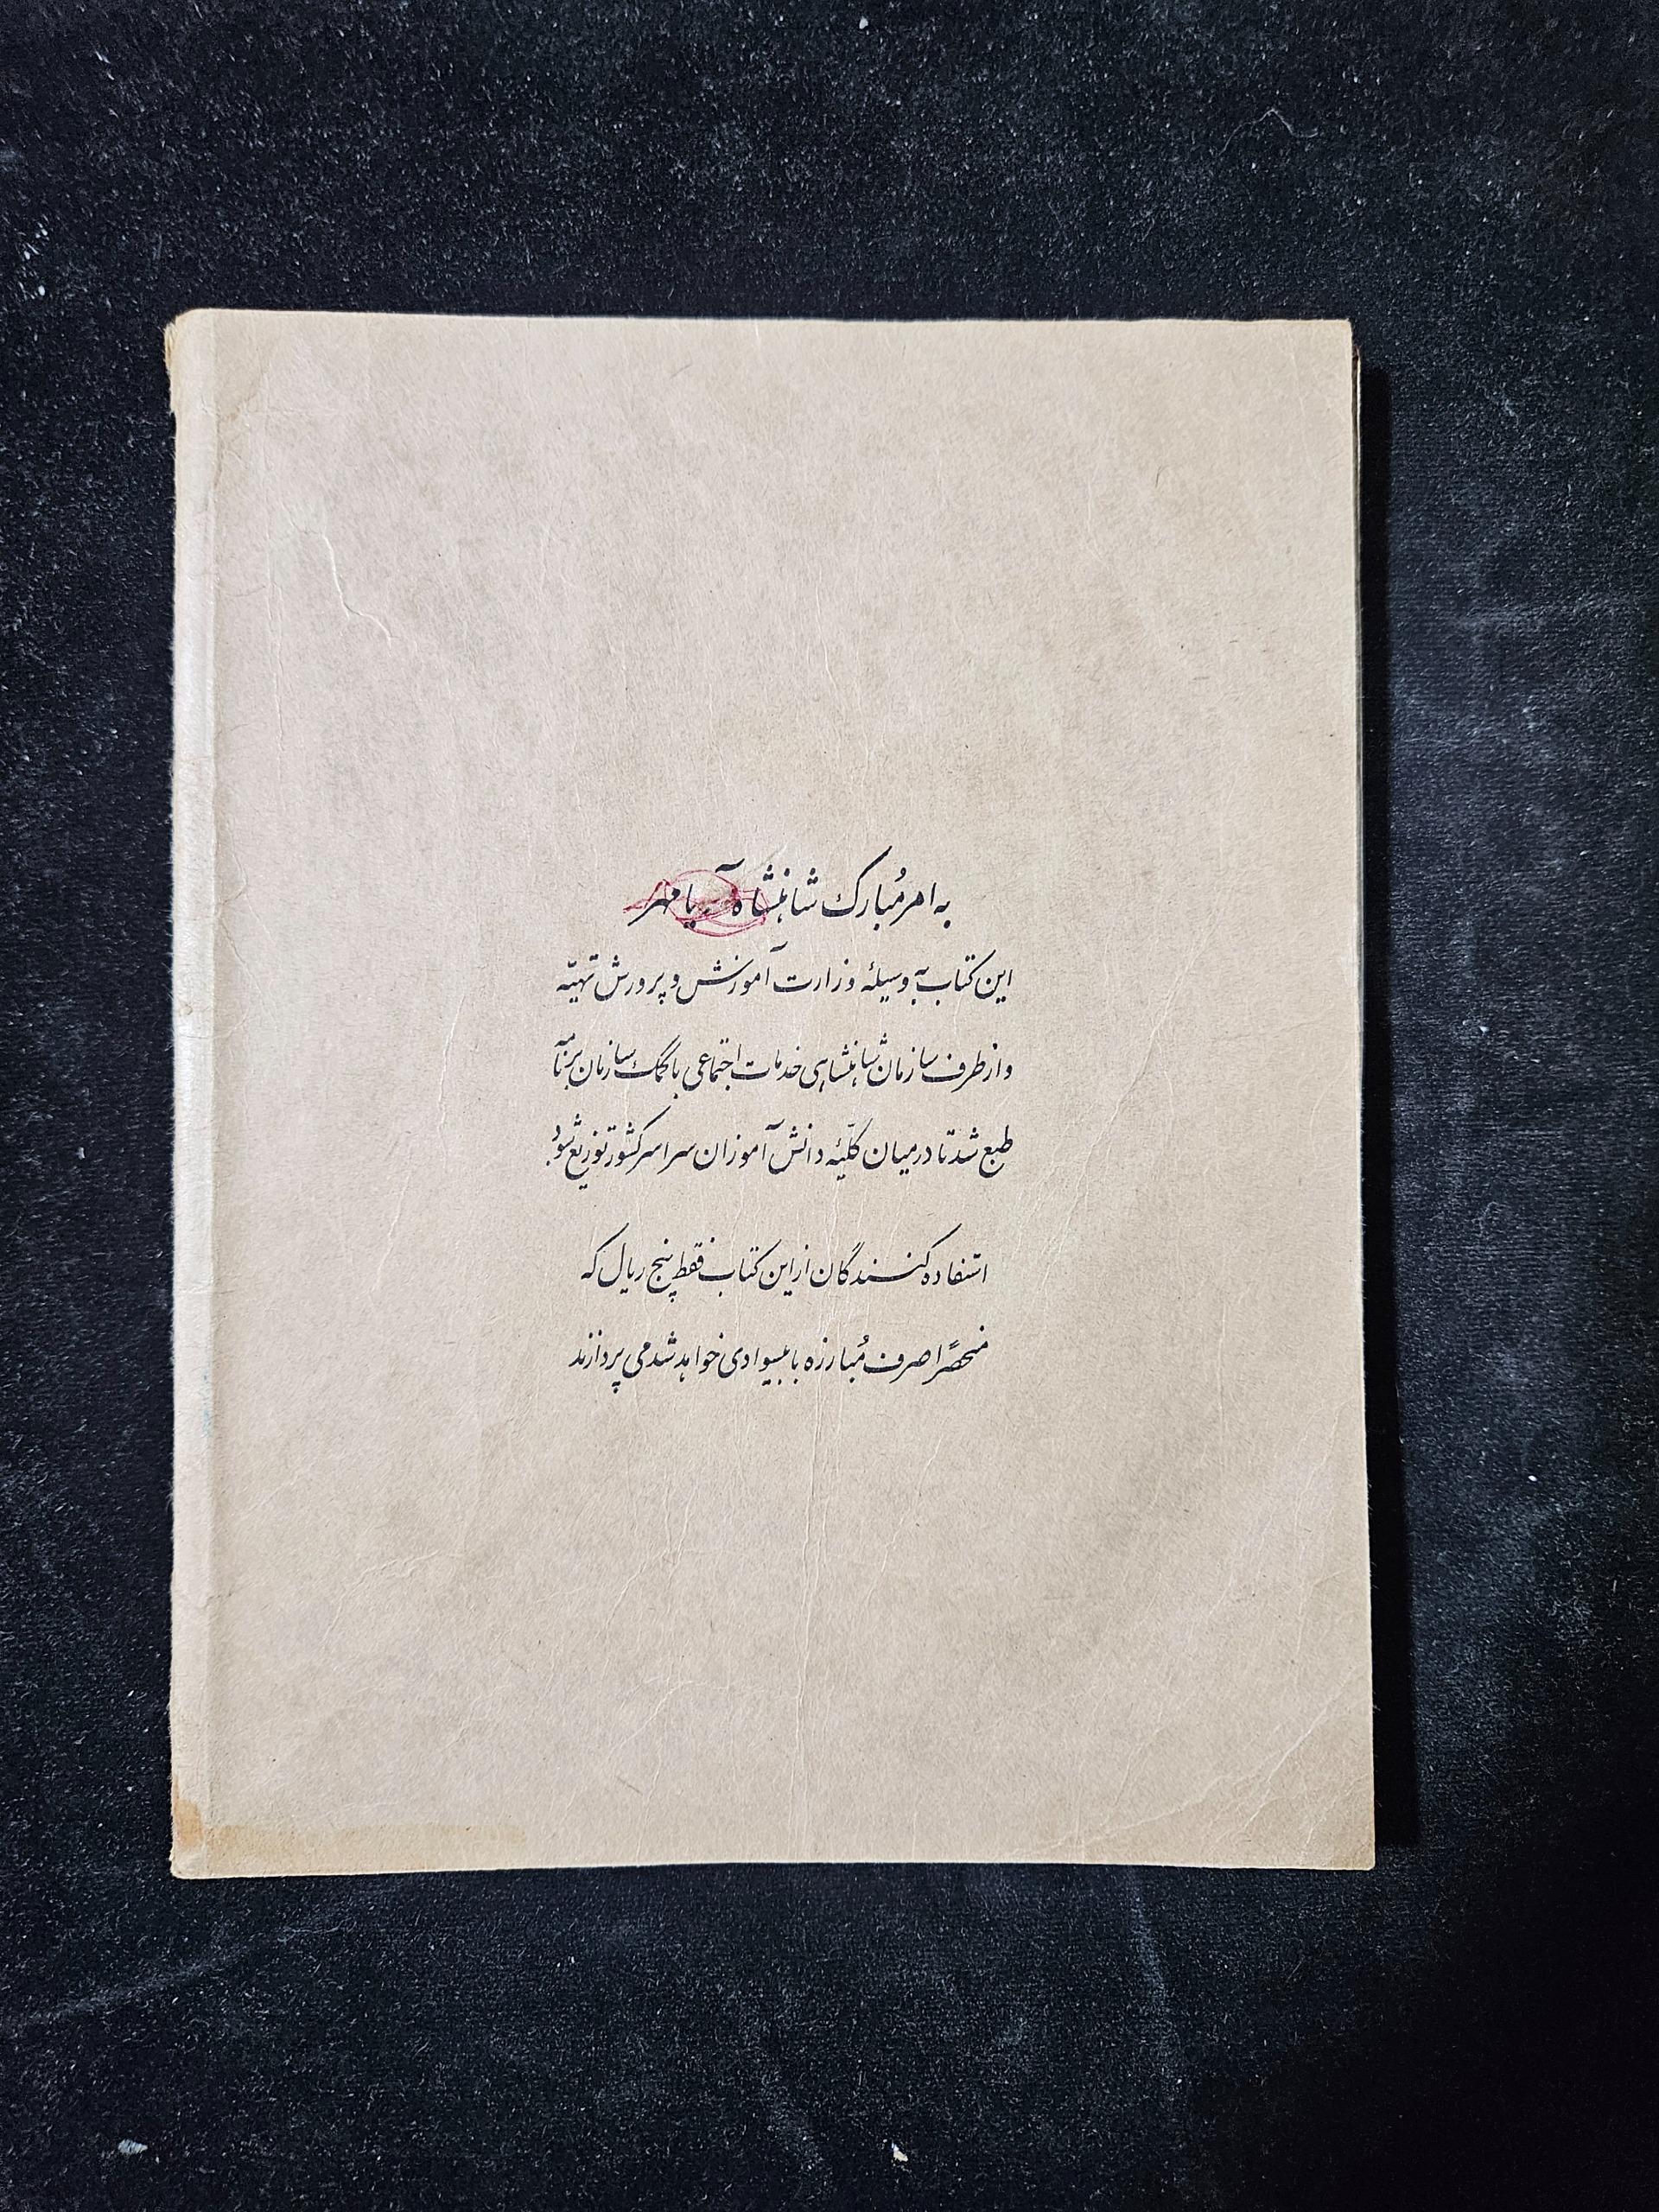 به امر مُبارک شاهنشاه آریامهر
این کتاب به وسیلهٔ وزارت آموزش و پرورش تهیّه
و از طرف سازمان شاهنشاهی خدمات اجتماعی با کمک سازمان برنامه
طبع شد تا در میان کلّیّه دانش آموزان سراسر کشور توزیع شود
استفاده کنندگان از این کتاب فقط پنج ریال که
منحصراً صرف مُبارزه با بیسوادی خواهد شد می پردازند